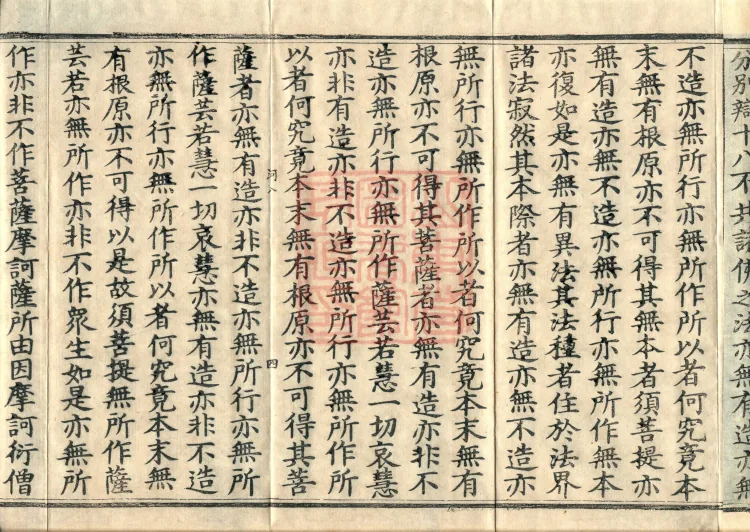 分別辯十八不共諸佛之法亦無有造亦無
不造亦無所行亦無所作所以者何究竟本
末無有根原亦不可得其無本者須菩提亦
無有造亦無不造亦無所行亦無所作無本
亦復如是亦無有異法其法種者住於法界
諸法寂然其本際者亦無有造亦無不造亦
無所行亦無所作所以者何究竟本末無有
根原亦不可得其菩薩者亦無有造亦非不
造亦無所行亦無所作薩芸若慧一切哀慧
亦非有造亦非不造亦無所行亦無所作所
以者何究竟本末無有根原亦不可得其菩
四
薩者亦無有造亦非不造亦無所行亦無所
作薩芸若慧一切哀慧亦無有造亦非不造
亦無所行亦無所作所以者何究竟本末無
有根原亦不可得以是故須菩提無所作薩
芸若亦無所作亦非不作眾生如是亦無所
作亦非不作菩薩摩訶薩所由因摩訶衍僧